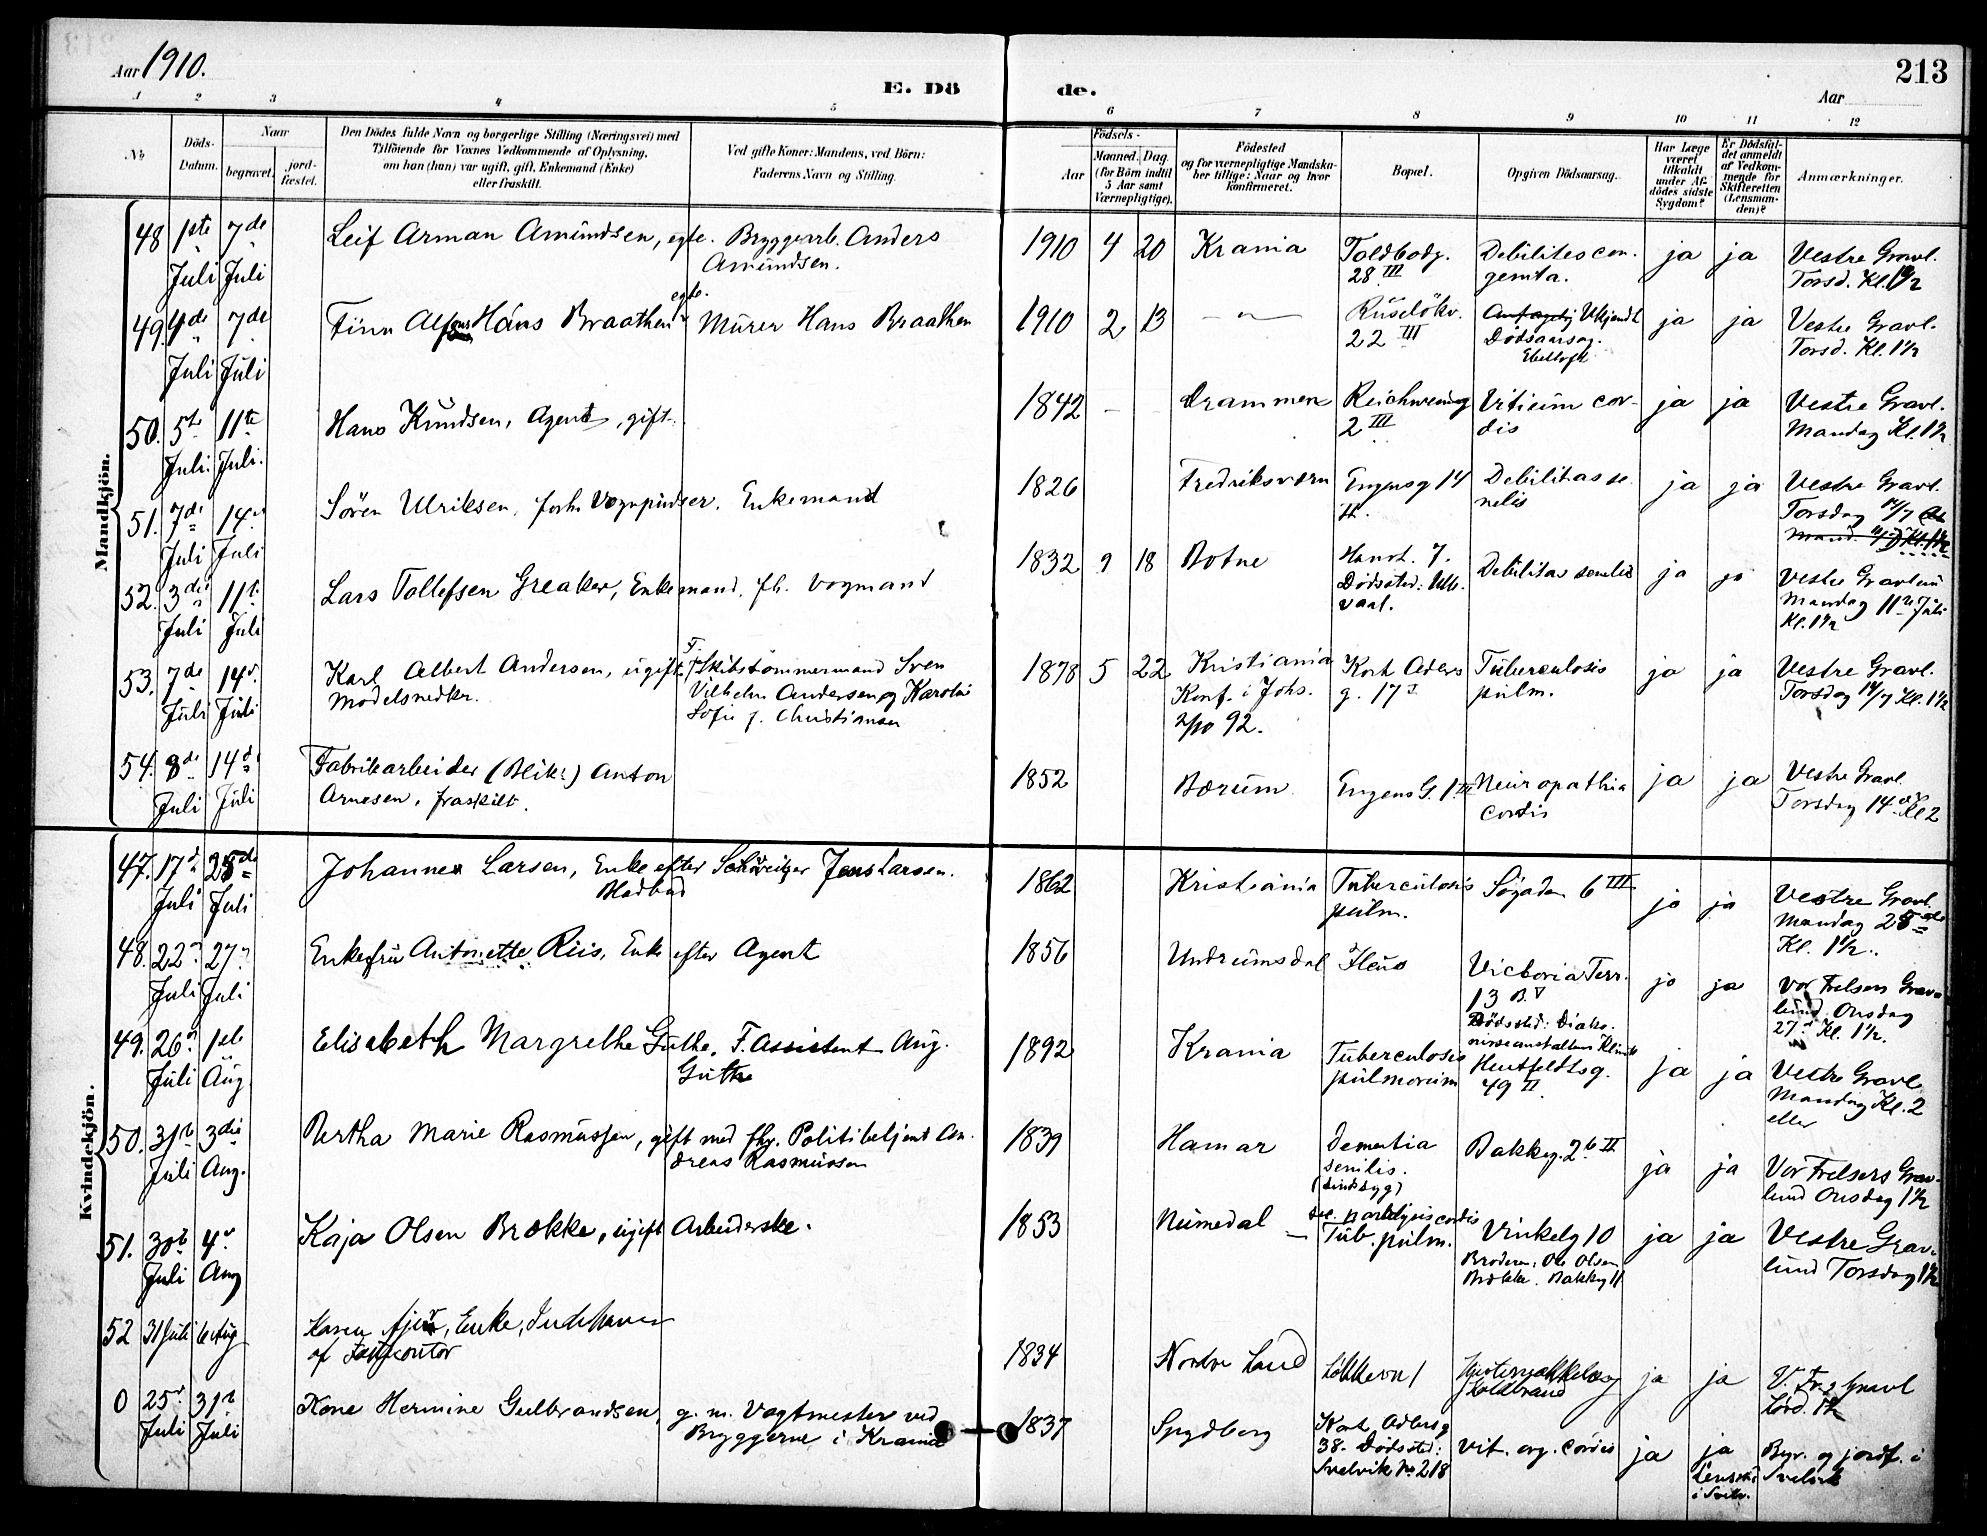 Aar 1910.
E. Dö
de.
213
Aar
1 2 3 4 5 6 7 8 9 10 11 12
No
Döds-Datum.
Naar
begravet.
jord-fæstet.
Den Dödes fulde Navn og borgerlige Stilling (Næringsvei) med
Tilföiende for Voxnes Vedkommende af Oplysning,
om han (hun) var ugift, gift, Enkemand (Enke)
eller fraskilt.
Ved gifte Koner: Mandens, ved Börn:
Faderens Navn og Stilling.
Födsels-
Aar
Maaned. Dag.
(for Börn indtil
5 Aar samt
Værnepligtige).
Födested
og for værnepligtige Mandska-
ber tillige: Naar og hvor
konfirmeret.
Bopæl.
Opgiven Dödsaarsag.
Har Læge
været
tilkaldt
under Af-
dödes sidste
Sygdom?
Er Dödsfal-
det anmeldt
af Vedkom-
mende for
Skifteretten
(Lensman-
den)?
Anmærkninger.
Mandkjön.
48 1ste Juli 7de Juli Leif Arman Amundsen, egte. Bryggearb. Anders
Amundsen.
1910 4 20 Krania Toldbodg.
28 III
Debilitas con-
genita.
ja ja Vestre Gravl.
Torsd. Kl. 1½
49. 4de Juli 7de Juli Finn Alf Hans Braathen egte. Murer Hans Braathen
1910 2 13 — " — Ruselökv.
22 III
Ukjendt
Dödsaarsag.
ja ja Vestre Gravl.
Torsd. Kl. 1½
50. 5te Juli. 11te Juli. Hans Knudsen, Agent, gift.
1842 - Drammen Reichweinsg
2 III
Vitium cor-
dis
ja ja Vestre Gravl.
Mandag Kl. 1½
51. 7de Juli 14de Juli Sören Ulriksen, forh. Vognpudser. Enkemand
1826 Fredriksværn Engensg 14
II.
Debilitas se-
nilis
ja ja Vestre Gravl.
Torsdag 14/7
52. 3die Juli 11te Juli Lars Tollefsen Greaker, Enkemand, fh. Vogmand
1832 9 18 Botne Hanst. 7.
Dödssted: Ulle-
vaal.
Debilitas senilis
ja ja Vestre Gravlun
Mandag 11te Juli
Kl. 1½
53. 7de Juli 14d. Juli Karl Albert Andersen, ugift
Modelsnedker.
F. Skibstömmermand Sven
Vilhelm Andersen og Karoline
Sofie f. Christiansen
1878 5 22 Kristiania
Konf. i Johs.
2/10 92.
Kort Aders
g. 17 I
Tuberculosis
pulm.
ja ja Vestre Gravl.
Torsdag 14/7 Kl. 1½
54. 8de Juli 14de Juli Fabrikarbeider (Blik.) Anton
Arnesen, fraskilt.
1852 Bærum Engens G. 1 III Neuropathia
cordis
ja ja Vestre Gravl.
Torsdag 14de Kl 2
Kvindekjön.
47. 17de Juli 25de Juli Johanne Larsen, Enke efter Jens Larsen.
1862 Kristiania Tuberculosis
pulm.
Sögaden 6 III
ja ja Vestre Gravl.
Mandag 25de
Kl. 1½.
48. 22de Juli 27de Juli Enkefru Antonette Riis, Enke efter Agent
1856 Undrumsdal Ileus Victoria Terr.
13 B. V
Dödssted: Diako-
nisseanstaltens Klinik
ja ja Vor Frelsers Grav-
lund. Onsdag
27de Kl. 1½.
49. 26de Juli 1ste Aug. Elisabeth Margrethe Guthe. F. Assistent Aug.
Guthe
1892 Krania Tuberculosis
pulmonum
Huitfeldtsg.
49 II.
ja ja Vestre Gravl.
Mandag Kl. 2
eller
50. 31te Juli 3die Aug. Bertha Marie Rasmussen, gift med fhv. Politibetjent An-
dreas Rasmussen
1839 Hamar Dementia
senilis.
(sindssyg)
Bakkeg. 26 II
ja ja Vor Frelsers Grav-
lund Onsdag 1½
51. 30te Juli 4de Aug Kaja Olsen Brække, ugift Arbeiderske.
1853 Numedal Tub. pulm.
Vinkelg 10
Broderen: Ole Olsen
Brække. Bakkeg 11
ja ja Vestre Grav-
lund Torsdag 1½
52 31 Juli 6 Aug Karen, Enke, Indehaver
af
1834 Nordre Land Lökkevn 1
ja ja V. Fr.s Gravl
Lörd. 1½
0 25de Juli 31te Juli Kone Hermine Gulbrandsen, g. m. Vagtmester ved
Bryggerne i Krania
1837 Spydberg Kort Adlersg
38. Dödssted:
Svelvik No. 218
Vit. org. cordis
ja ja
Lensm.
i Svelv.
Begr. og jordf. i
Svelvik